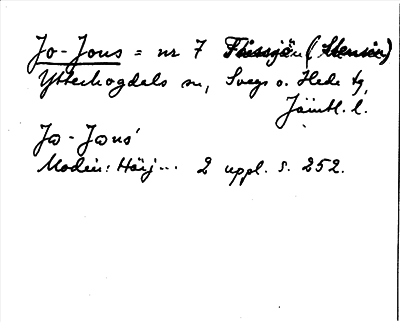 Jo-Jons = nr 7 Flässjön (Stensin)
Ytterhogdals sn, Svegs o. Hede tg,
Jämtl. l.
Jo-Jons'
Modin: Härj... 2 uppl. s. 252.